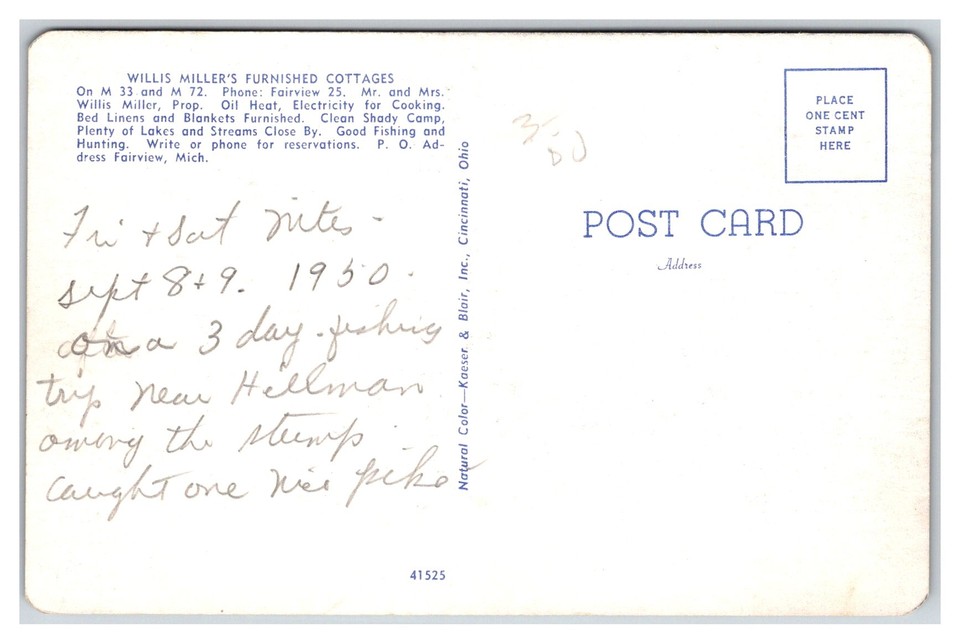 WILLIS MILLER'S FURNISHED COTTAGES
On M 33 and M 72. Phone: Fairview 25. Mr. and Mrs.
Willis Miller, Prop. Oil Heat, Electricity for Cooking.
Bed Linens and Blankets Furnished. Clean Shady Camp,
Plenty of Lakes and Streams Close By. Good Fishing and
Hunting. Write or phone for reservations. P. O. Ad-
dress Fairview, Mich.
Fri + Sat Nites -
Sept 8+9. 1950.
on a 3 day - fishing
trip near Hillman
among the stumps
caught one nice pike
41525
Natural Color—Kaeser & Blair, Inc., Cincinnati, Ohio
PLACE
ONE CENT
STAMP
HERE
POST CARD
Address